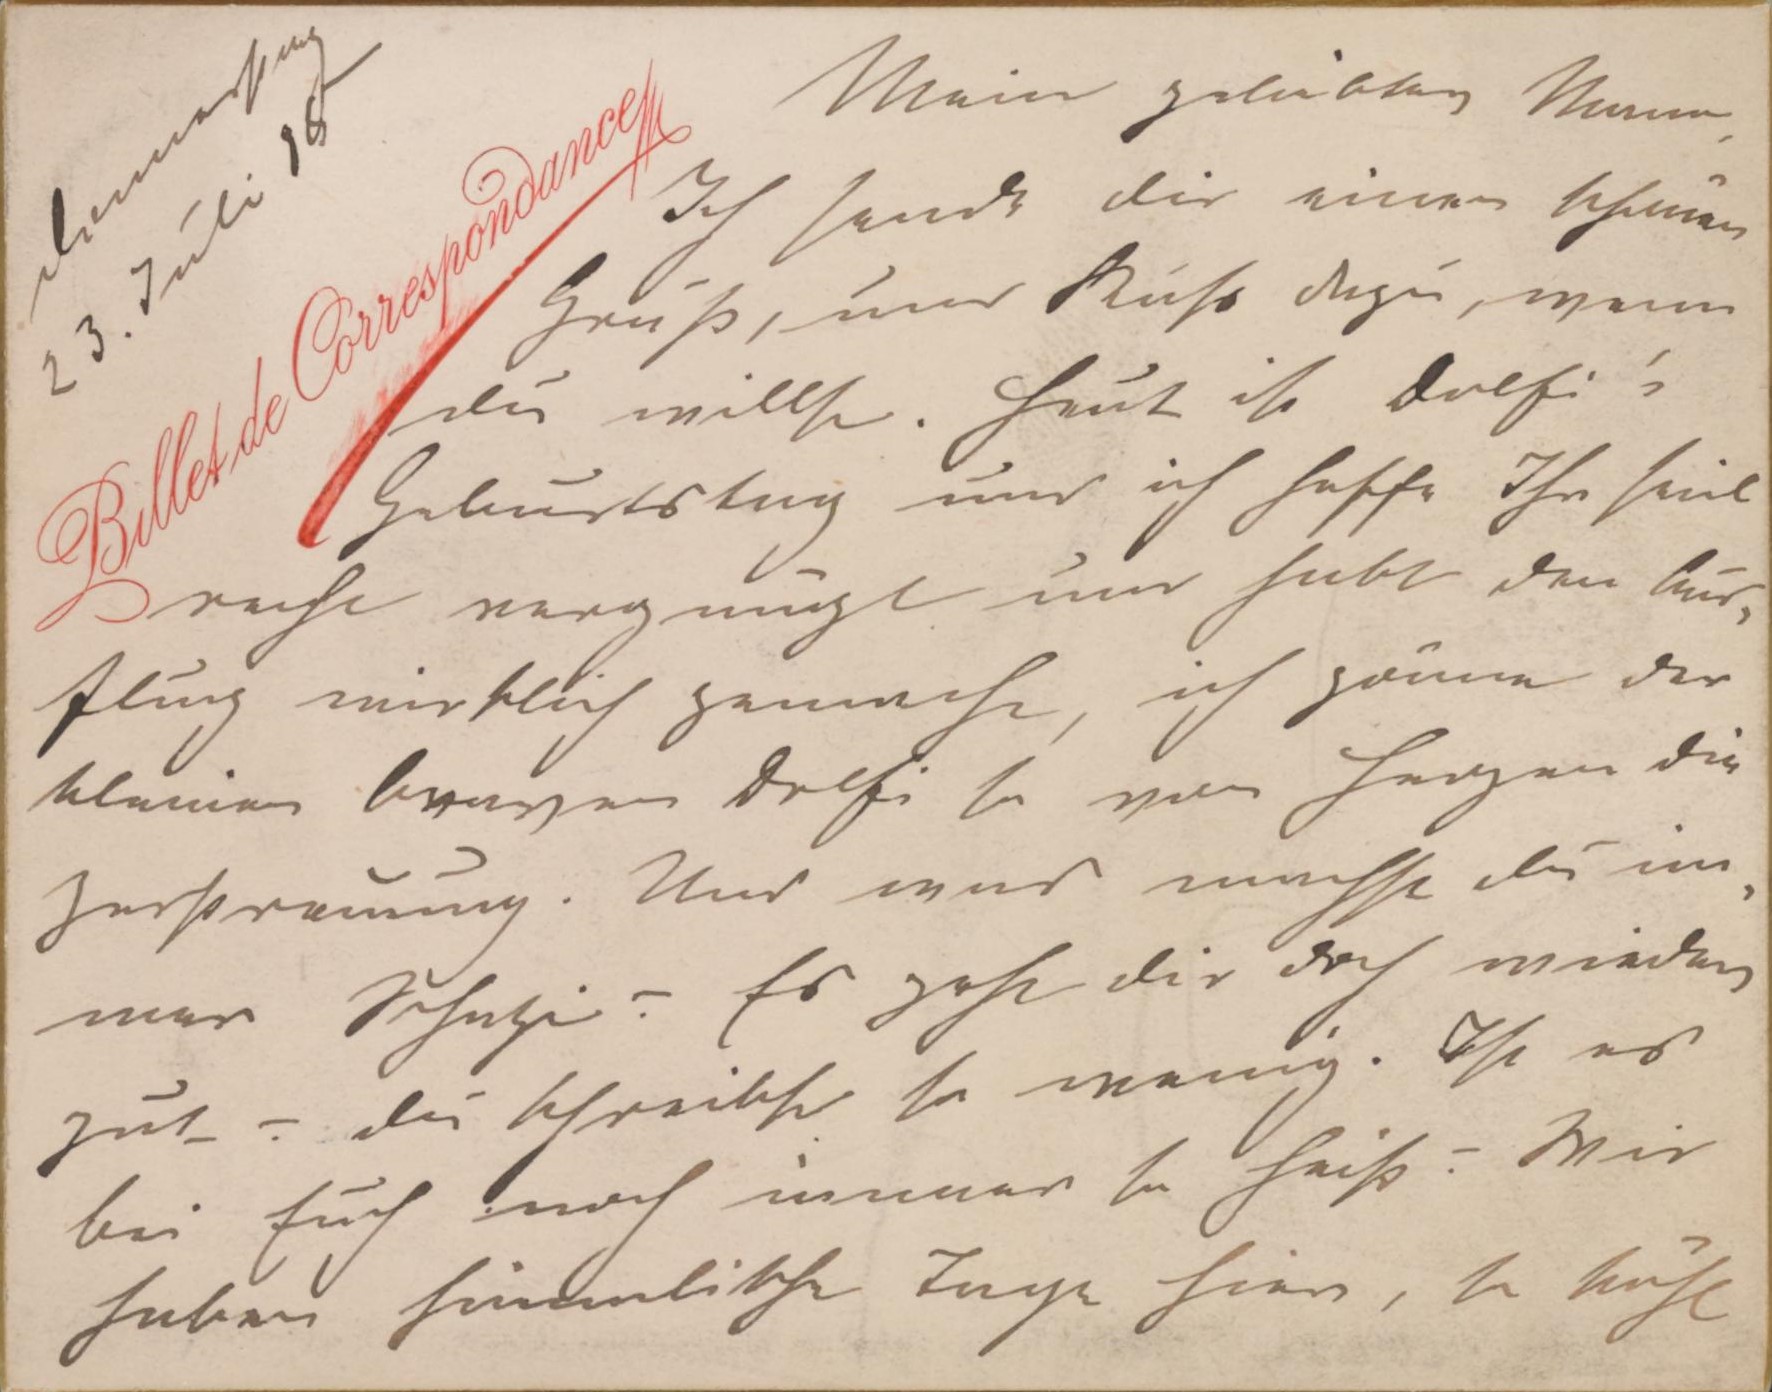 23. Juli 98
Billet de Correspondance
Mein geliebter Mann,
Ich sende dir einen schönen
Gruß, und Kuß dazu, wenn
du willst. Heut ist Dolfi's
Geburtstag und ich hoffe Ihr seid
recht vergnügt und habt den Aus-
flug wirklich gemacht, ich gönne der
kleinen braven Dolfi so von Herzen die
Zerstreuung. Und was machst du im-
mer Schatzi - Es geht dir doch wieder
gut - du schreibst so wenig. Ist es
bei Euch noch immer so heiß - Wir
haben himmlische Tage hier, so kühl